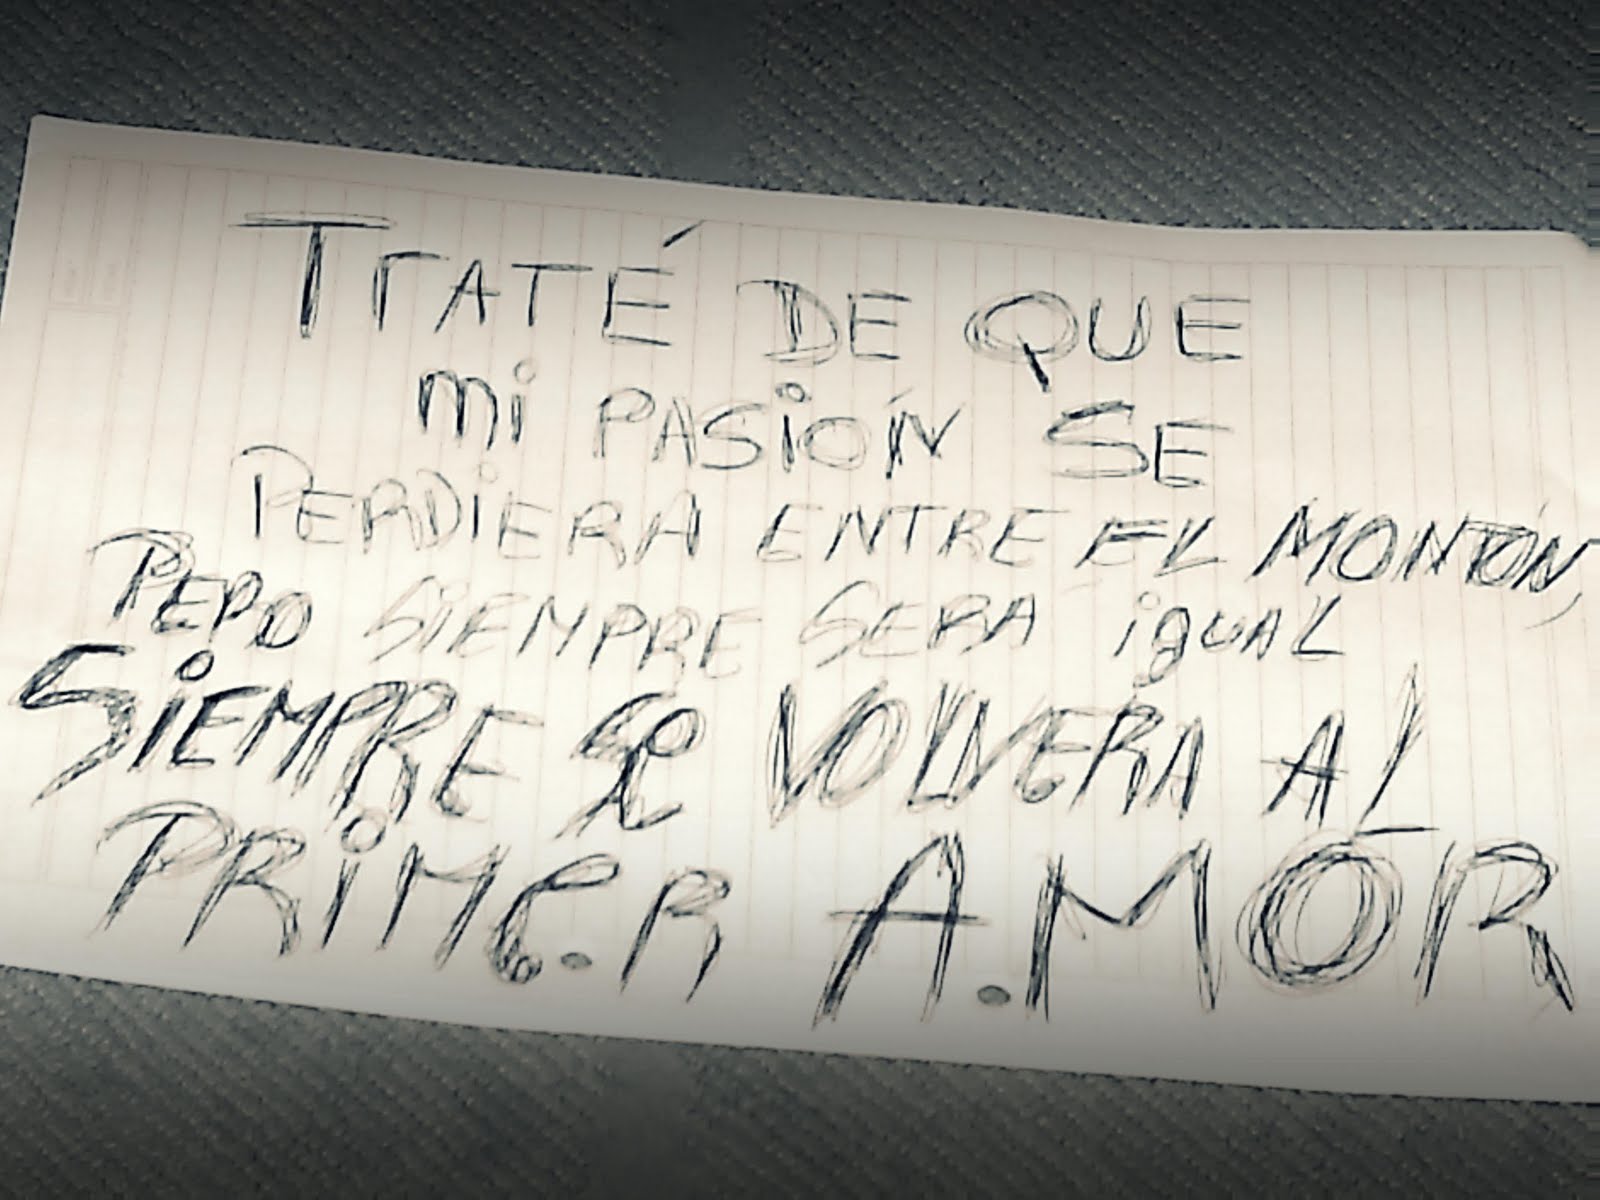 TraTÉ DE QUE
mi PASiÓN SE
PERDiERA ENTRE EL MONTÓN,
PERO SiEMPRE SERÁ igUAL
SiEMPRE SE VOLVERA AL
PRiME.R A.MOR